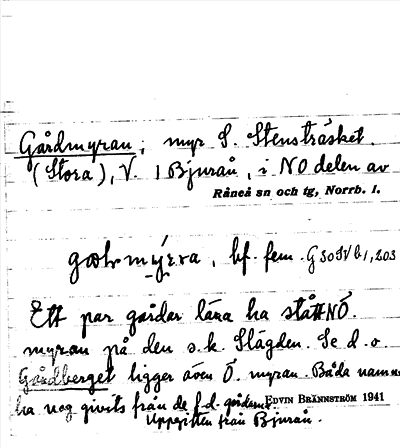 Gårdmyran, myr S. Stensträsket.
(Stora), V. i Bjuraå, i NO delen av
Råneå sn och tg, Norrb. l.
bf. fem.
Ett par gårdar lära ha stått NÖ.
myran på den s.k. Slägden. Se d. o.
Gårdberget ligger även Ö. myran. Båda namnen
ha nog givits från de f.d. gårdarna.
EDVIN BRÄNNSTRÖM 1941
Uppgiften från Bjuraån.